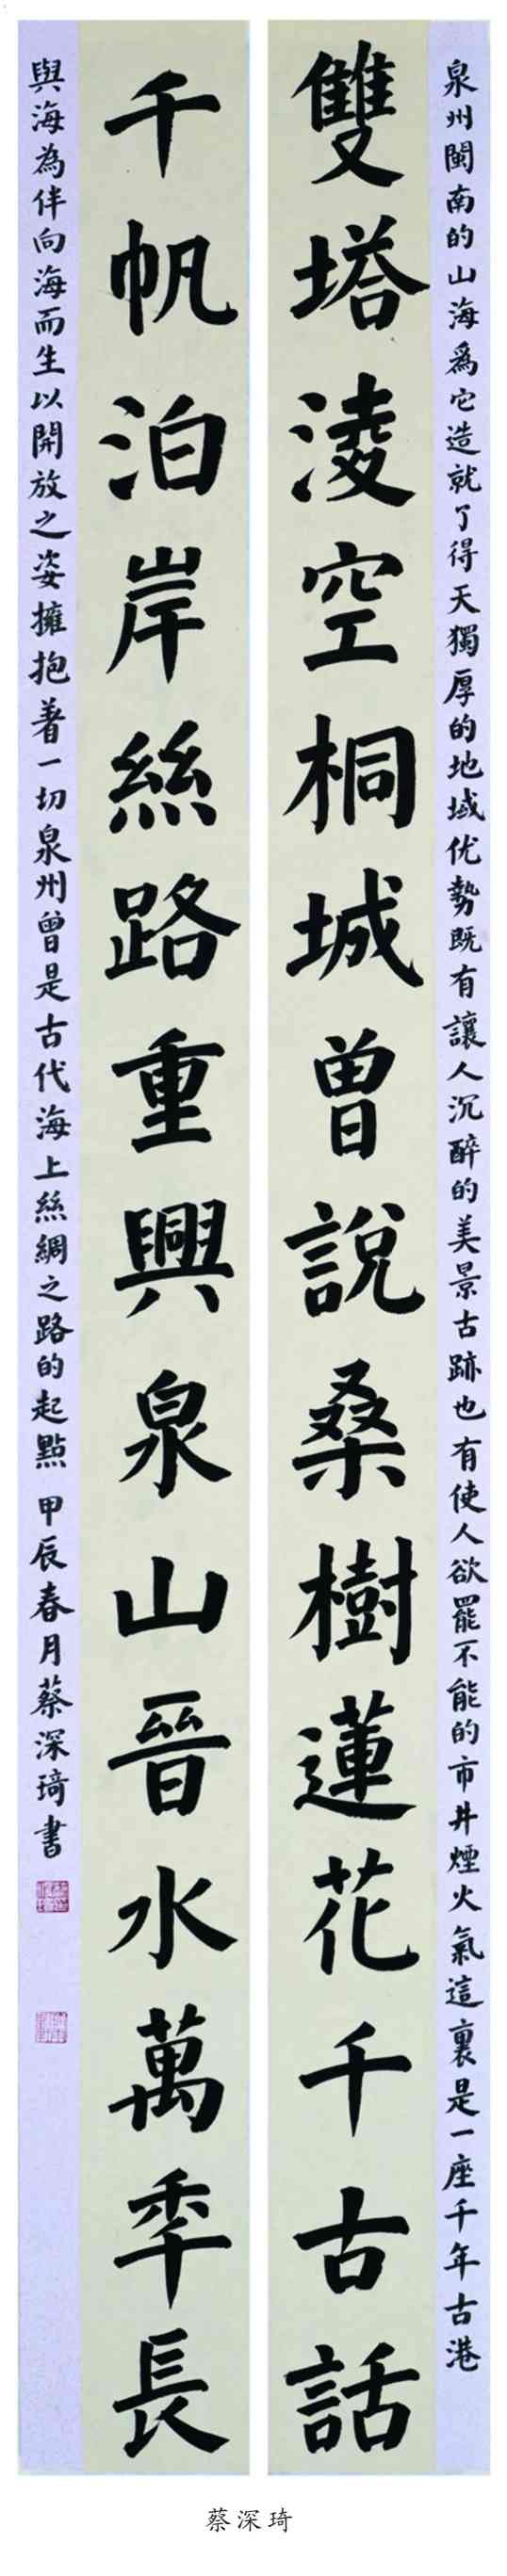 泉州閩南的山海爲它造就了得天獨厚的地域优勢既有讓人沉醉的美景古跡也有使人欲罷不能的市井煙火氣這裏是一座千年古港
雙塔淩空桐城曾說桑樹蓮花千古話
千帆泊岸絲路重興泉山晉水萬年長
與海為伴向海而生以開放之姿擁抱着一切泉州曾是古代海上絲綢之路的起點 甲辰春月蔡深琦書
蔡深琦